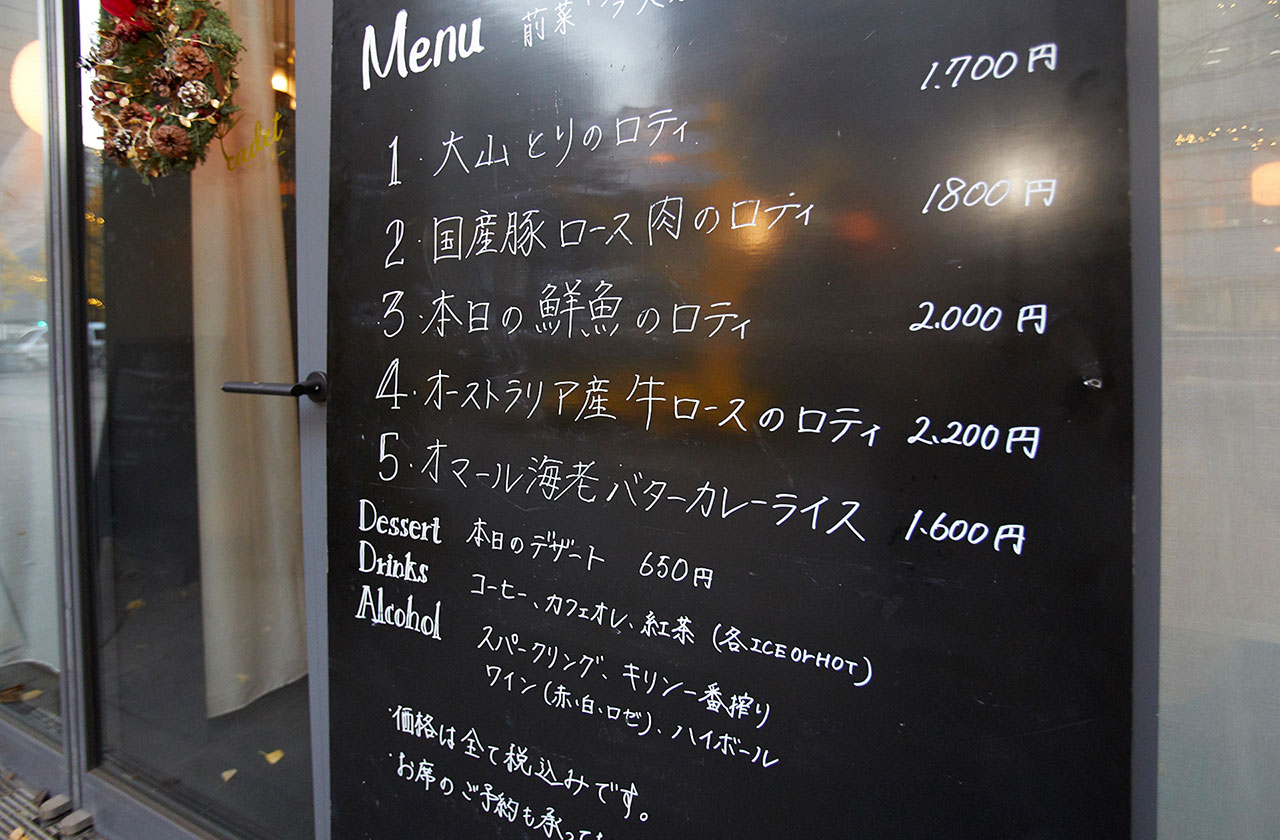 Menu 前菜
1. 大山とりのロティ 1.700円
2. 国産豚ロース肉のロディ 1800円
3. 本日の鮮魚のロティ 2.000円
4. オーストラリア産牛ロースのロティ 2.200円
5. オマール海老バターカレーライス 1.600円
Dessert 本日のデザート 650円
Drinks コーヒー、カフェオレ、紅茶 (各ICE or HOT)
Alcohol スパークリング、キリン一番搾り
ワイン(赤、白、ロゼ)、ハイボール
・価格は全て税込みです。
・お席のご予約も承って
cadet